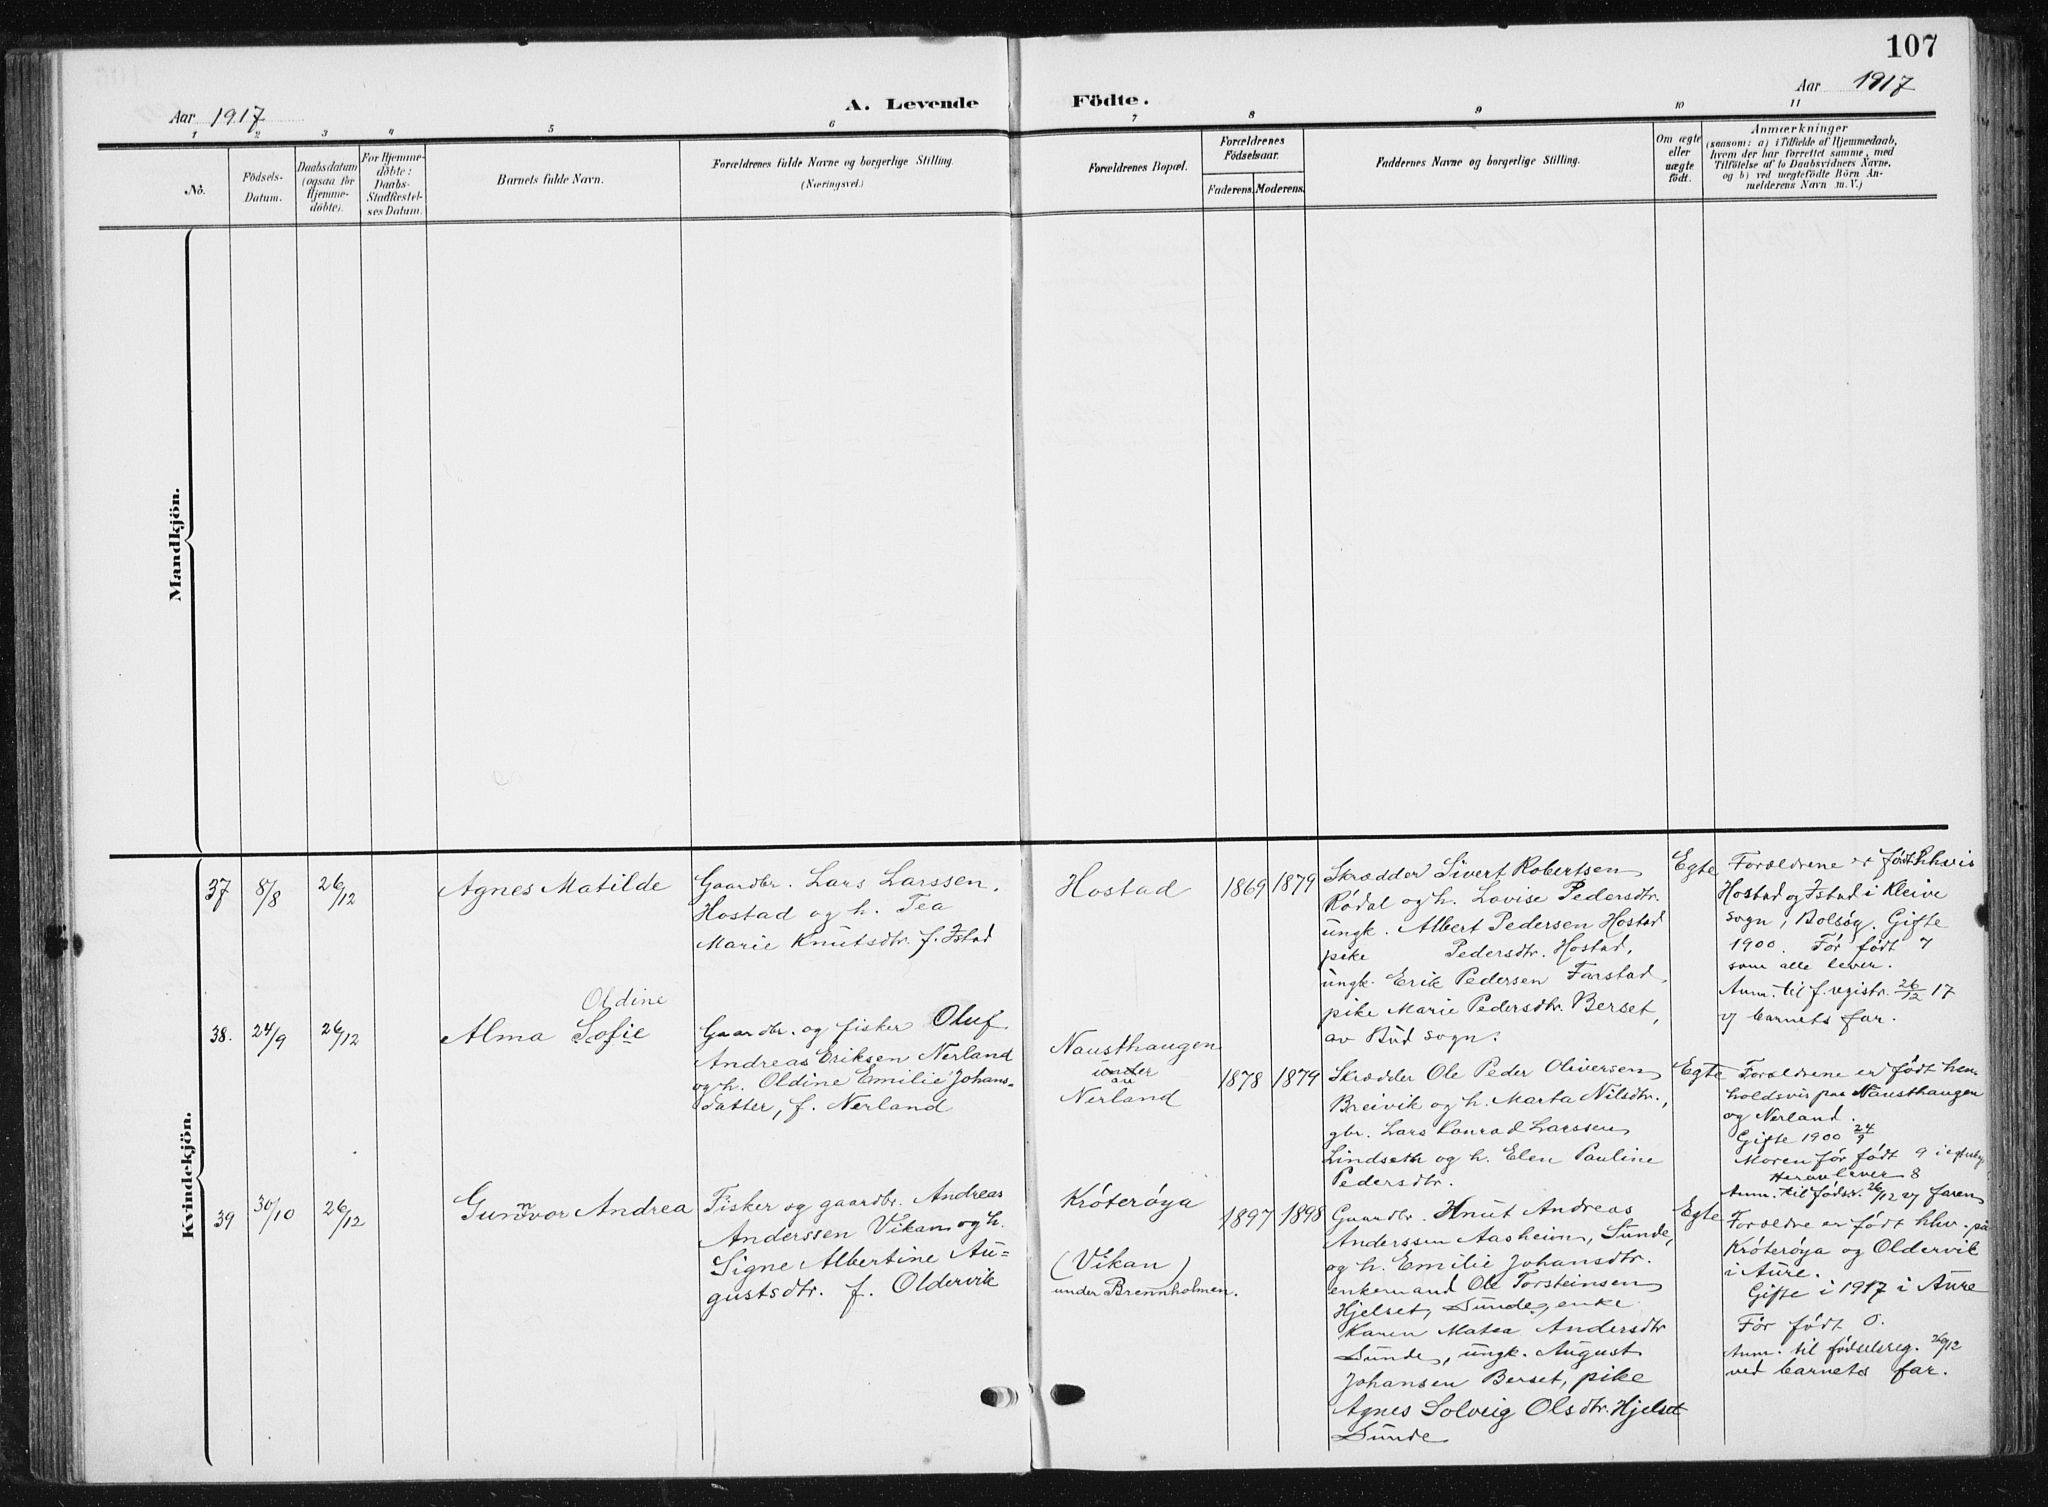 107
Aar 1917
A. Levende
Födte.
Aar 1917
1 2 3 4 5 6 7 8 9 10 11
Nö.
Födsels-
Datum.
Daabsdatum
(ogsaa for
Hjemme-
döbte).
For Hjemme-
döbte:
Daabs-
Stadfestel-
ses Datum.
Barnets fulde Navn.
Forældrenes fulde Navne og borgerlige Stilling.
(Næringsvei.)
Forældrenes Bopæl.
Forældrenes
Födselsaar.
Faderens. Moderens.
Faddernes Navne og borgerlige Stilling.
Om ægte
eller
uægte
födt.
Anmærkninger
(saasom: a) i Tilfælde af Hjemmedaab,
hvem der har forrettet samme, med
Tilföielse af to Daabsvidners Navne,
og b) ved uægtefödte Börn An-
melderens Navn m. V.)
Mandkjön.
Kvindekjön.
37
8/8
26/12
Agnes Matilde
Gaardbr. Lars Larssen
Hostad og h. Tea
Marie Knutsdtr. f. Istad
Hostad
1869
1879
Skrædder Sivert Robertsen
Rødal og h. Lovise Pedersdtr.
ungk. Albert Pedersen Hostad
pike Pedersdtr. Hostad,
ungk. Erik Pedersen Farstad,
pike Marie Pedersdtr. Berset,
av Bud sogn.
Egte
Forældrene er født hhvis
Hostad og Istad i Kleive
sogn, Bolsøy. Gifte
1900. Før født 7
som alle lever.
Anm. til f. registr. 26/12 17
v/ barnets far.
38.
24/9
26/12
Oldine
Alma Sofie
Gaardbr. og fisker Oluf
Andreas Eriksen Nerland
og h. Oldine Emilie Johans-
datter, f. Nerland
Nausthaugen
under
av
Nerland
1878
1879
Skrædder Ole Peder Oliversen
Breivik og h. Marta Nilsdtr.,
gbr. Lars Konrad Larssen
Lindseth og h. Elen Pauline
Pedersdtr.
Egte
Forældrene er født hen-
holdsvis paa Nausthaugen
og Nerland.
Gifte 1900 24/9
Moren før født 9 i
Herav lever 8
Anm. til fødsr. 26/12 v/ faren
39
30/10
26/12
n
Gunvor Andrea
Fisker og gaardbr. Andreas
Anderssen Vikan og h.
Signe Albertine Au-
gustsdtr. f. Oldervik
Króterøya
(Vikan)
under Brennholmen.
1897
1898
Gaardbr. Knut Andreas
Anderssen Aasheim, Sunde,
og h. Emilie Johansdtr.
enkemand Ole Torsteinsen
Hjelset, Sunde, enke
Karen Matea Andersdtr
Sunde, ungk. August
Johansen Berset, pike
Agnes Solveig Olsdtr. Hjelset
Sunde
Egte
Forældre er født hhv. på
Króterøya og Oldervik
i Aure.
Gifte i 1917 i Aure
Før født 0.
Anm. til fødselsreg. 26/12
ved barnets far.